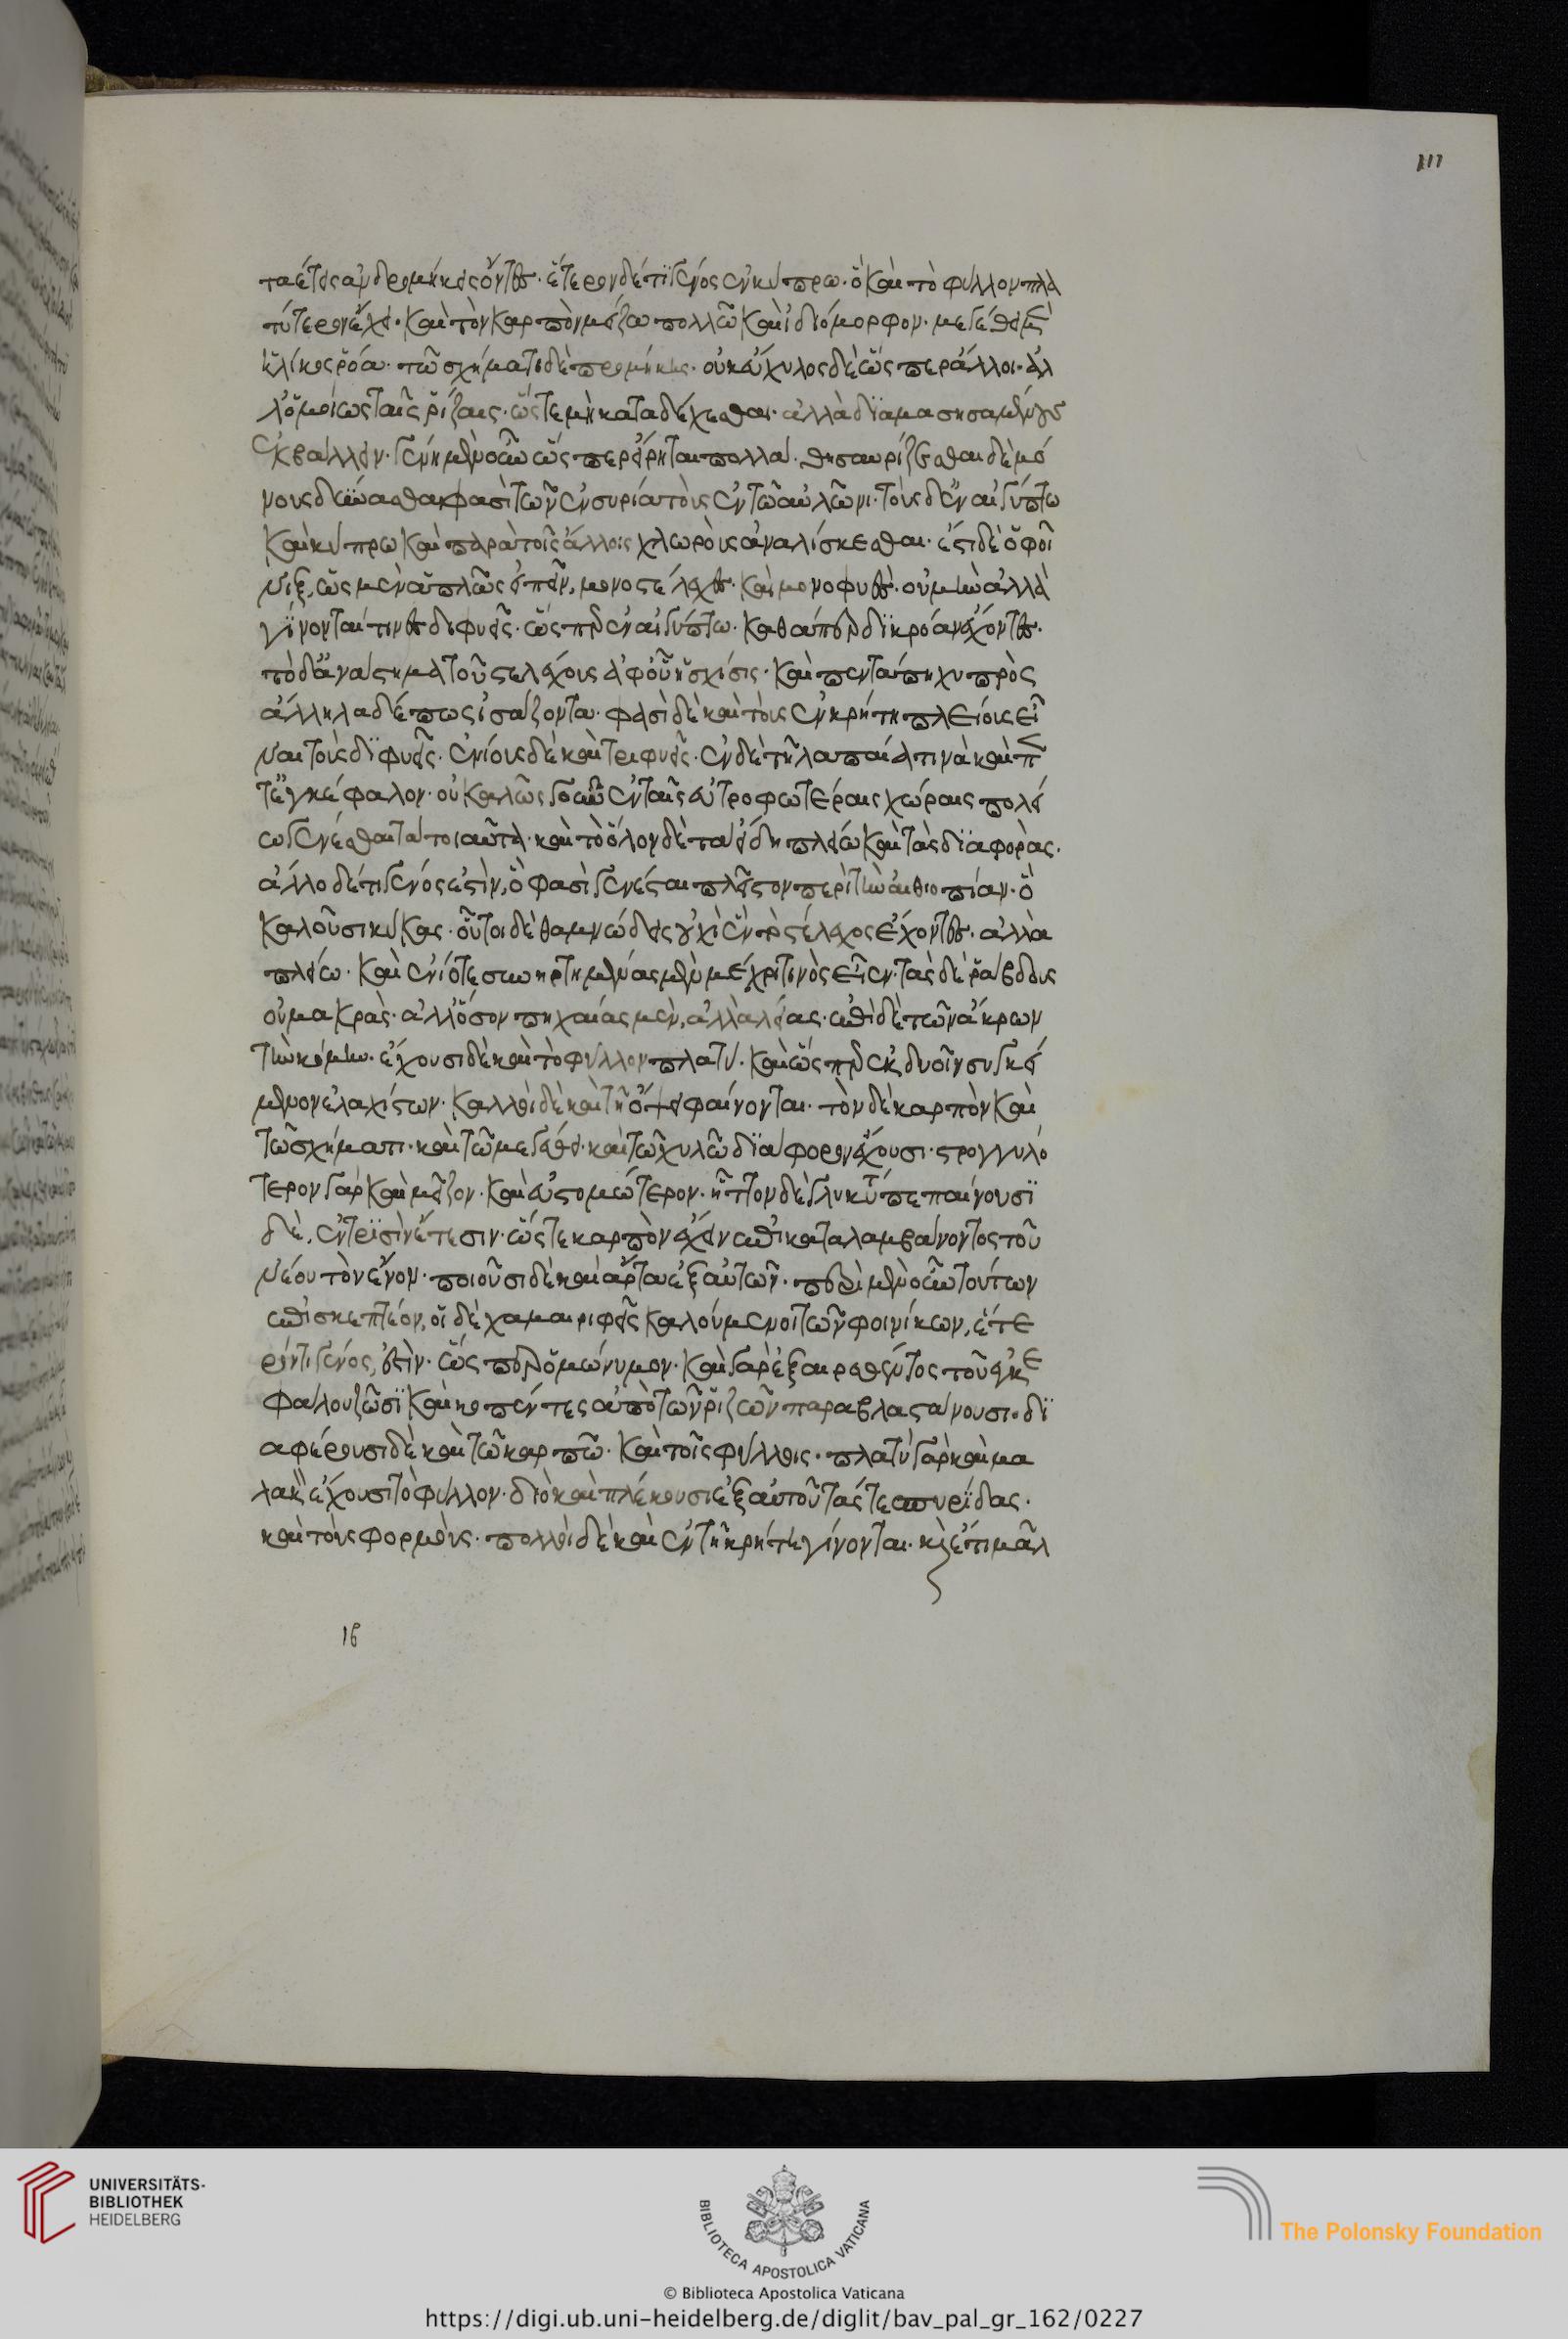 ταέτεις ἀνδρομήκεις ὄντες· ἕτερον δέ τι γένος ἐν κύπρω· ὃ καὶ τὸ φύλλον πλα
τύτερον ἔχει· καὶ τὸν καρπὸν μείζω πολλῶ καὶ ἰδιόμορφον· μεγέθει μὲν
ἡλίκος ῥόα· τῶ σχήματι δὲ προμήκης· οὐκ εὔχυλος δὲ ὥσπερ ἄλλοι· ἀλ
λ' ὁμοίως ταῖς ῥίζαις· ὥστε μὴ καταδέχεσθαι· ἀλλὰ διαμασησαμένους
ἐκβάλλειν· γένη μὲν οὖν ὥσπερ εἴρηται πολλά· θησαυρίζεσθαι δὲ μό
νους δύνασθαι φασὶ τῶν ἐν συρία τοὺς ἐν τῶ αὐλῶνι· τοὺς δ' ἐν αἰγύπτω
καὶ κύπρω καὶ παρὰ τοῖς ἄλλοις χλωροὺς ἀναλίσκεσθαι· ἔστι δὲ ὁ φοῖ
νιξ, ὡς μὲν ἁπλῶς εἰπεῖν, μονοστέλεχες· καὶ μονοφυές· οὐ μὴν ἀλλὰ
γίνονται τινες διφυεῖς· ὥσπερ ἐν αἰγύπτω· καθάπερ δίκροαν ἔχοντες·
τὸ δ' ἀνάστημα τοῦ στελέχους ἀφ' οὗ ἡ σχίσις· καὶ πεντάπηχυ πρὸς
ἄλληλα δέ πως ἰσάζοντα· φασὶ δὲ καὶ τοὺς ἐν κρήτη πλείους εἶ
ναι τοὺς διφυεῖς· ἐνίους δὲ καὶ τριφυεῖς· ἐν δὲ τῆ λαπαία τινὰ καὶ πε
τεγκέφαλον· οὐκ ἀλόγως γοῦν ἐν ταῖς εὐτροφωτέραις χώραις πολεί
ω γενέσθαι τὰ τοιαῦτα· καὶ τὸ ὅλον δὲ τὰ εἴδη πλείω καὶ τὰς διαφοράς·
ἄλλο δέ τι γένος ἐστὶν, ὅ φασι γενέσθαι πλεῖστον περὶ τὴν αἰθιοπίαν· ὃ
καλοῦσι κύκας· οὗτοι δὲ θαμνώδεις οὐχὶ ἓν τὸ στέλεχος ἔχοντες· ἀλλὰ
πλείω· καὶ ἐνίοτε συνηρτημένας μὲν μέχρι τινὸς εἰς ἕν· τὰς δὲ ῥάβδους
οὐ μακρὰς· ἀλλ' ὅσον πηχυαίας μὲν, ἀλλὰ λείας· ἐπὶ δὲ τῶν ἄκρων
τὴν κόμην· ἔχουσι δὲ καὶ τὸ φύλλον πλατύ· καὶ ὥσπερ ἐκ δυοῖν συγκεί
μενον ἐλαχίστων· καλλοὶ δὲ καὶ τῆ ὄψει φαίνονται· τὸν δὲ καρπὸν καὶ
τῶ σχήματι· καὶ τῶ μεγέθει· καὶ τῶ χυλῶ διάφορον ἔχουσι· στρογγυλό
τερον γὰρ καὶ μεῖζον· καὶ εὐστομώτερον· ἧττον δὲ γλυκύτ πεπαίνουσι
δὲ, ἐν τρισὶν ἔτεσιν· ὥστε καρπὸν ἔχειν ἐπικαταλαμβάνοντος τοῦ
νέου τὸν ἔνον· ποιοῦσι δὲ καὶ ἄρτους ἐξ αὐτῶν· περὶ μὲν οὖν τούτων
ἐπισκεπτέον, οἱ δὲ χαμαιριφεῖς καλούμενοι τῶν φοινίκων, ἕτε
ρόν τι γένος, ἐστὶν· ὥσπερ ὁμώνυμον· καὶ γὰρ ἐξαιρεθέντος τοῦ ἐγκε
φάλου ζῶσι καὶ κοπέντες ἀπὸ τῶν ῥιζῶν παραβλαστάνουσι· δι
αφέρουσι δὲ καὶ τῶ καρπῶ· καὶ τοῖς φύλλοις· πλατὺ γὰρ καὶ μα
λακὸν ἔχουσι τὸ φύλλον· διὸ καὶ πλέκουσιν ἐξ αὐτοῦ τάς τε σπυρίδας·
καὶ τοὺς φορμοὺς· πολλοὶ δὲ καὶ ἐν τῆ κρήτη γίνονται· καὶ ἔτι μᾶλ
111
UNIVERSITÄTS-
BIBLIOTHEK
HEIDELBERG
BIBLIOTECA APOSTOLICA VATICANA
The Polonsky Foundation
© Biblioteca Apostolica Vaticana
https://digi.ub.uni-heidelberg.de/diglit/bav_pal_gr_162/0227